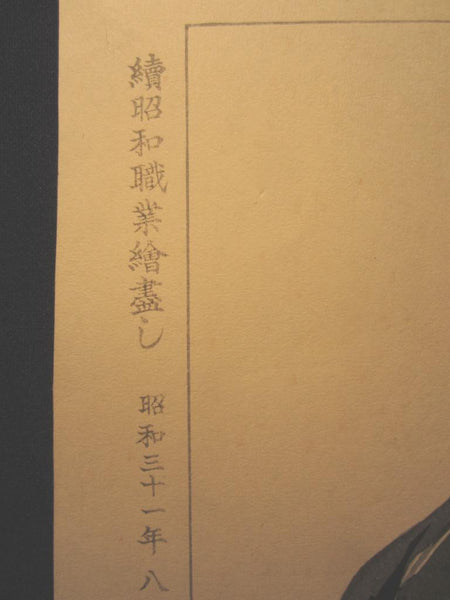 續昭和職業繪盡し 昭和三十一年八